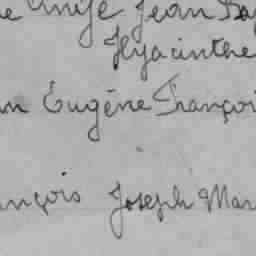 Jean
Hyacinthe
Eugène Françoi
nçois Joseph Mar